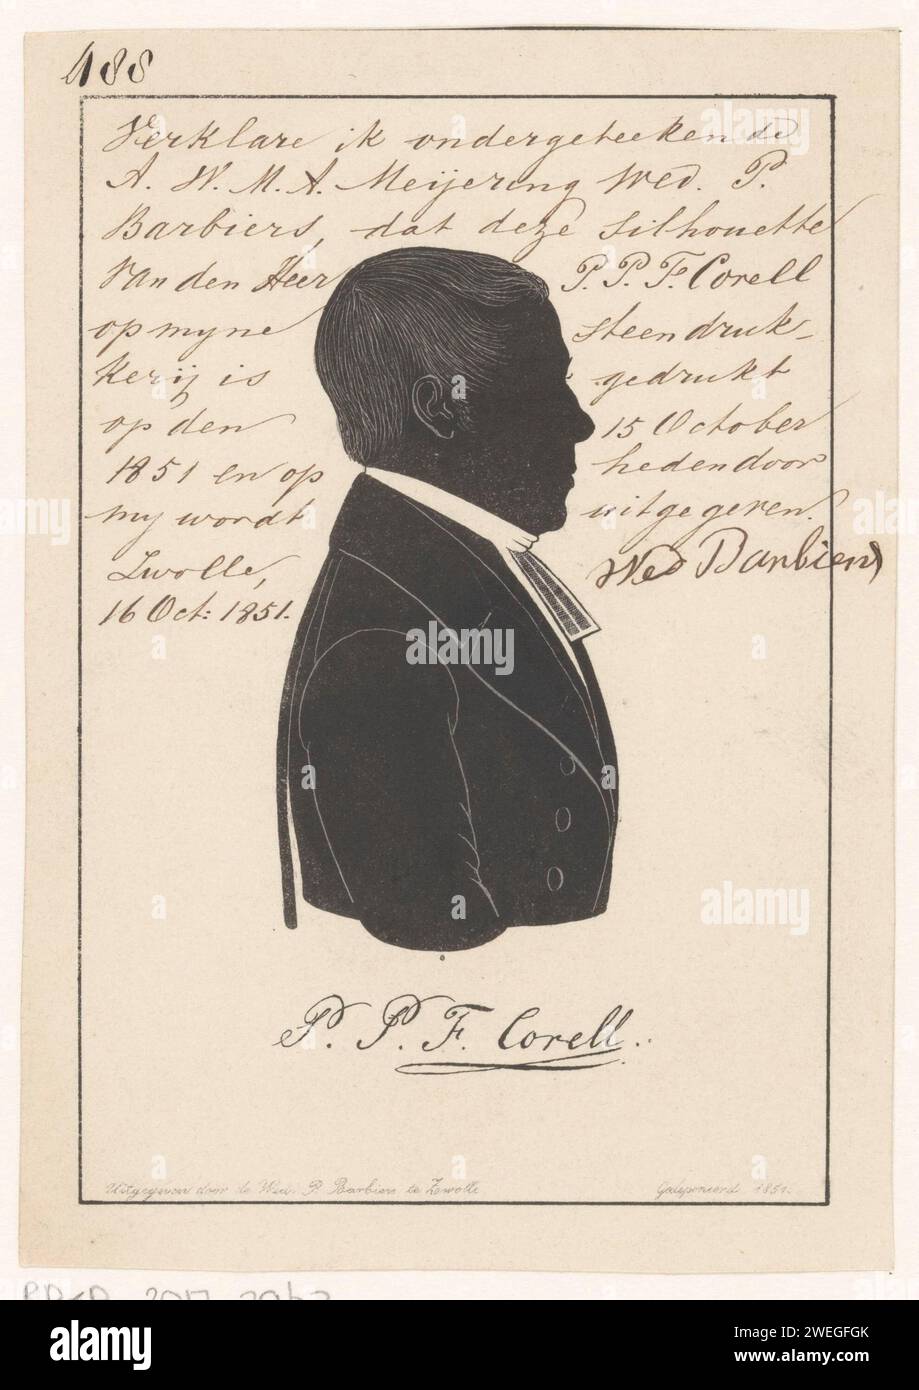 488
Verklare ik ondergeteekende
A. W. M. A. Meijering Wed. P.
Barbiers, dat deze silhouette
van den Heer P. P. F. Corell
op myne steendruk-
kerij is gedrukt
op den 15 October
1851 en op heden door
my wordt uitgegeven.
Zwolle, Wed Barbiers
16 Oct: 1851.
P. P. F. Corell.
Uitgegeven door de Wed. P. Barbiers te Zwolle Gedeponeerd 1851.
alamy
Image ID: 2WEGFGK
www.alamy.com